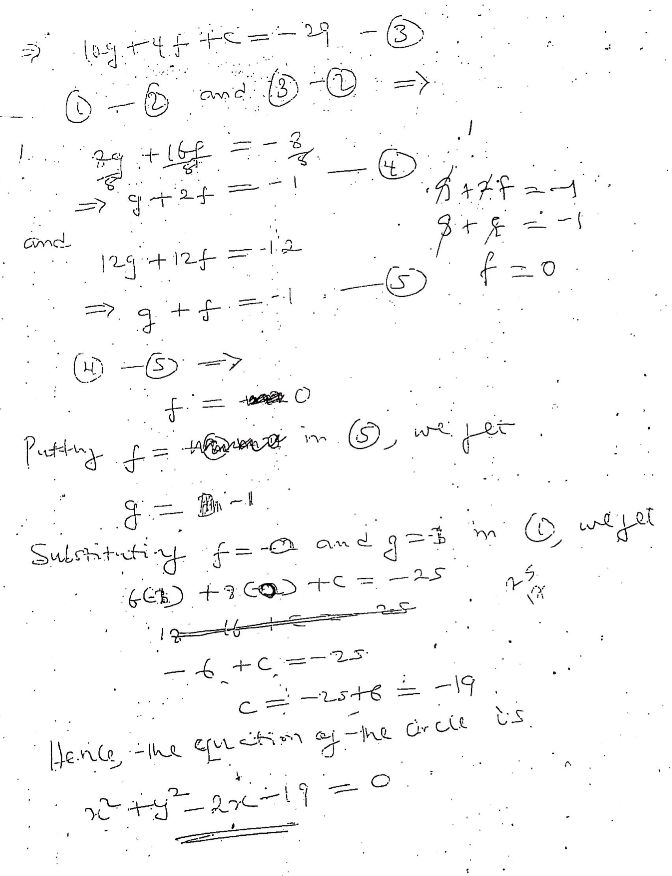 ⇒ 10g + 4f + c = -29 - ③
① - ② and ③ - ② ⇒
8g/8 + 16f/8 = -8/8
⇒ g + 2f = -1 — ④
g + 2f = -1
g + f = -1
f = 0
and
12g + 12f = -12
⇒ g + f = -1 . — ⑤
④ - ⑤ ⇒
f = 0
Putting f = in ⑤, we get
g = -1
Substituting f = -0 and g = in ①, we get
6( ) + 8(-0) + c = -25
- 6 + c = -25
c = -25+6 = -19
Hence, the equation of the circle is
x² + y² - 2x - 19 = 0